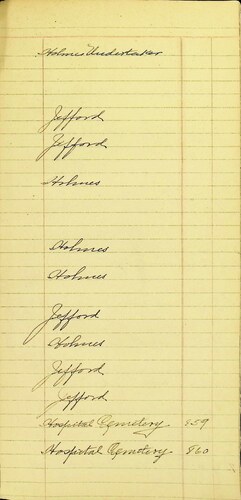 Holmes Undertaker
Jefford
Jefford
Holmes
Holmes
Holmes
Jefford
Holmes
Jefford
Jefford
Hospital Cemetery 859
Hospital Cemetery 860